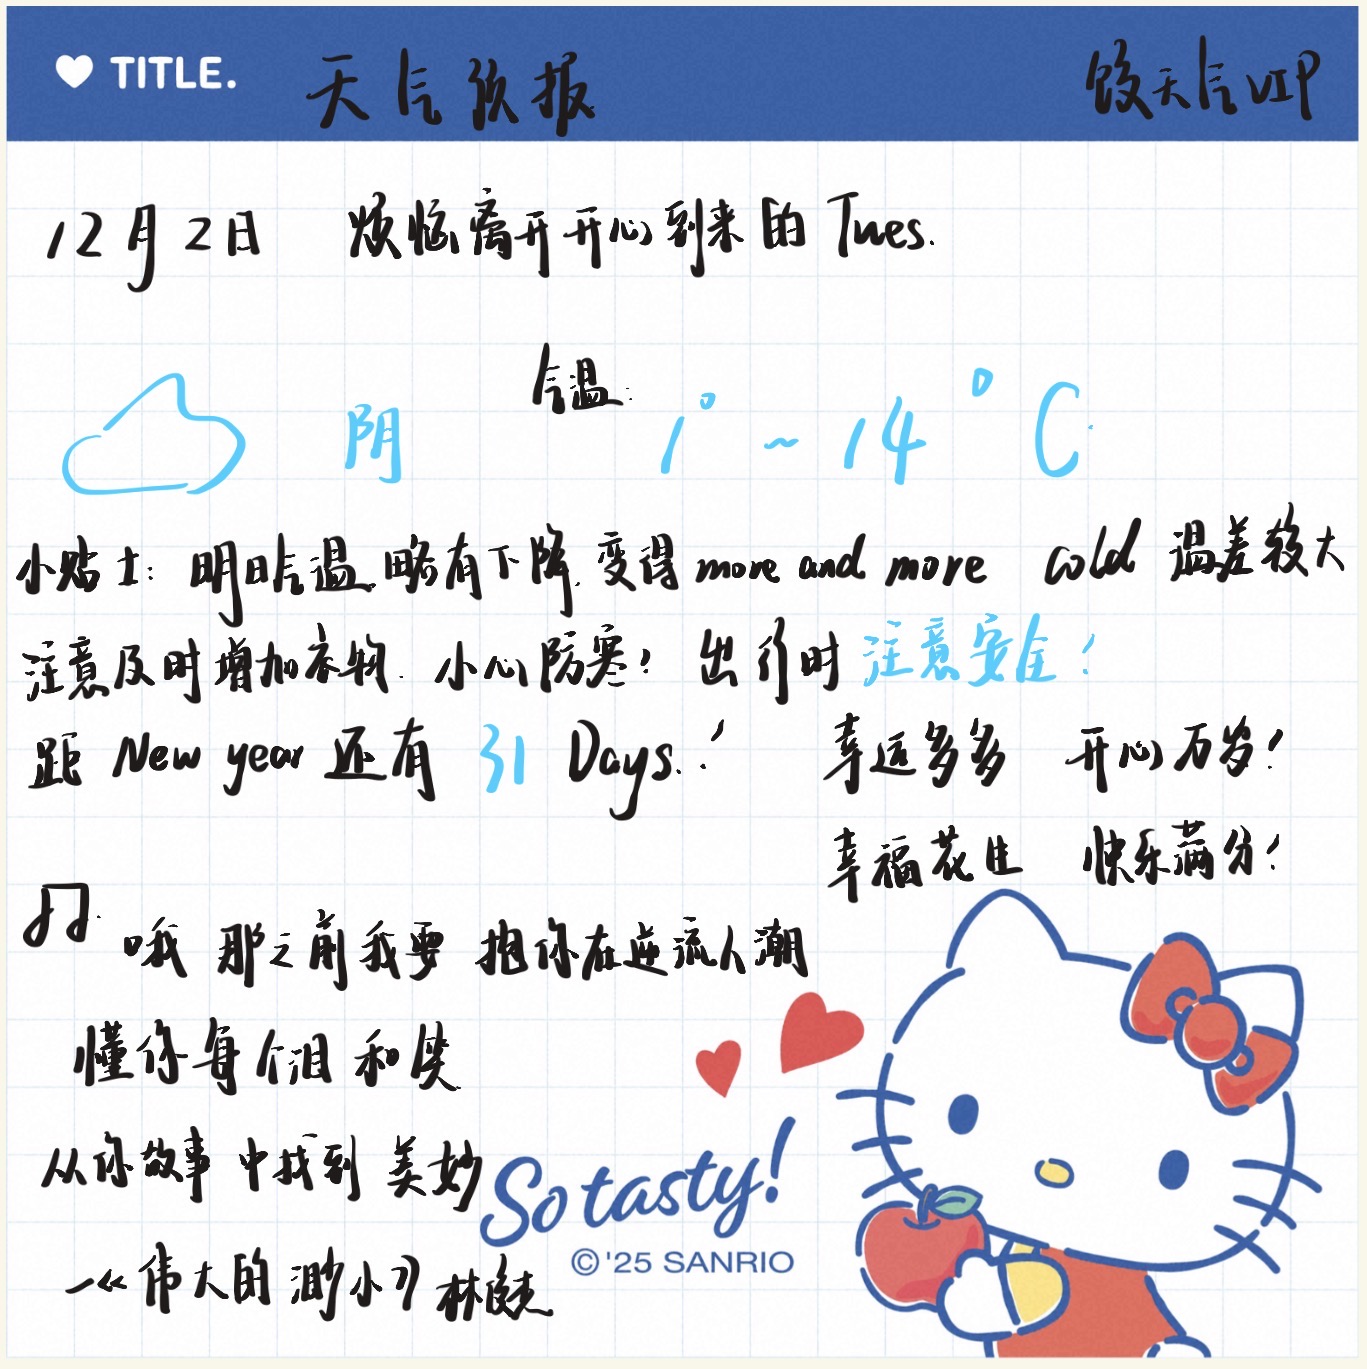 TITLE. 天气预报 饺天气VIP
12月2日 烦恼离开开心到来的 Tues.
气温:
阴 1°~14°C
小贴士: 明日气温略有下降,变得more and more cold 温差较大
注意及时增加衣物. 小心防寒! 出行时注意安全!
距 New year 还有 31 Days.! 幸运多多 开心万岁!
幸福花生 快乐满分!
哦 那之前我要 抱你在逆流人潮
懂你每个泪和笑
从你故事中找到美妙
So tasty!
©'25 SANRIO
—《伟大的渺小》林俊杰